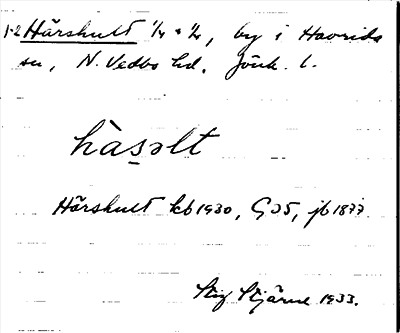 1-2 Hårshult 1/4 + 1/4, by i Haurida
sn, N. Vedbo hd. Jönk. l.
hàs̱əlt
Hårshult kb 1930, G 35, jb 1877.
Stig Stjärne 1933.